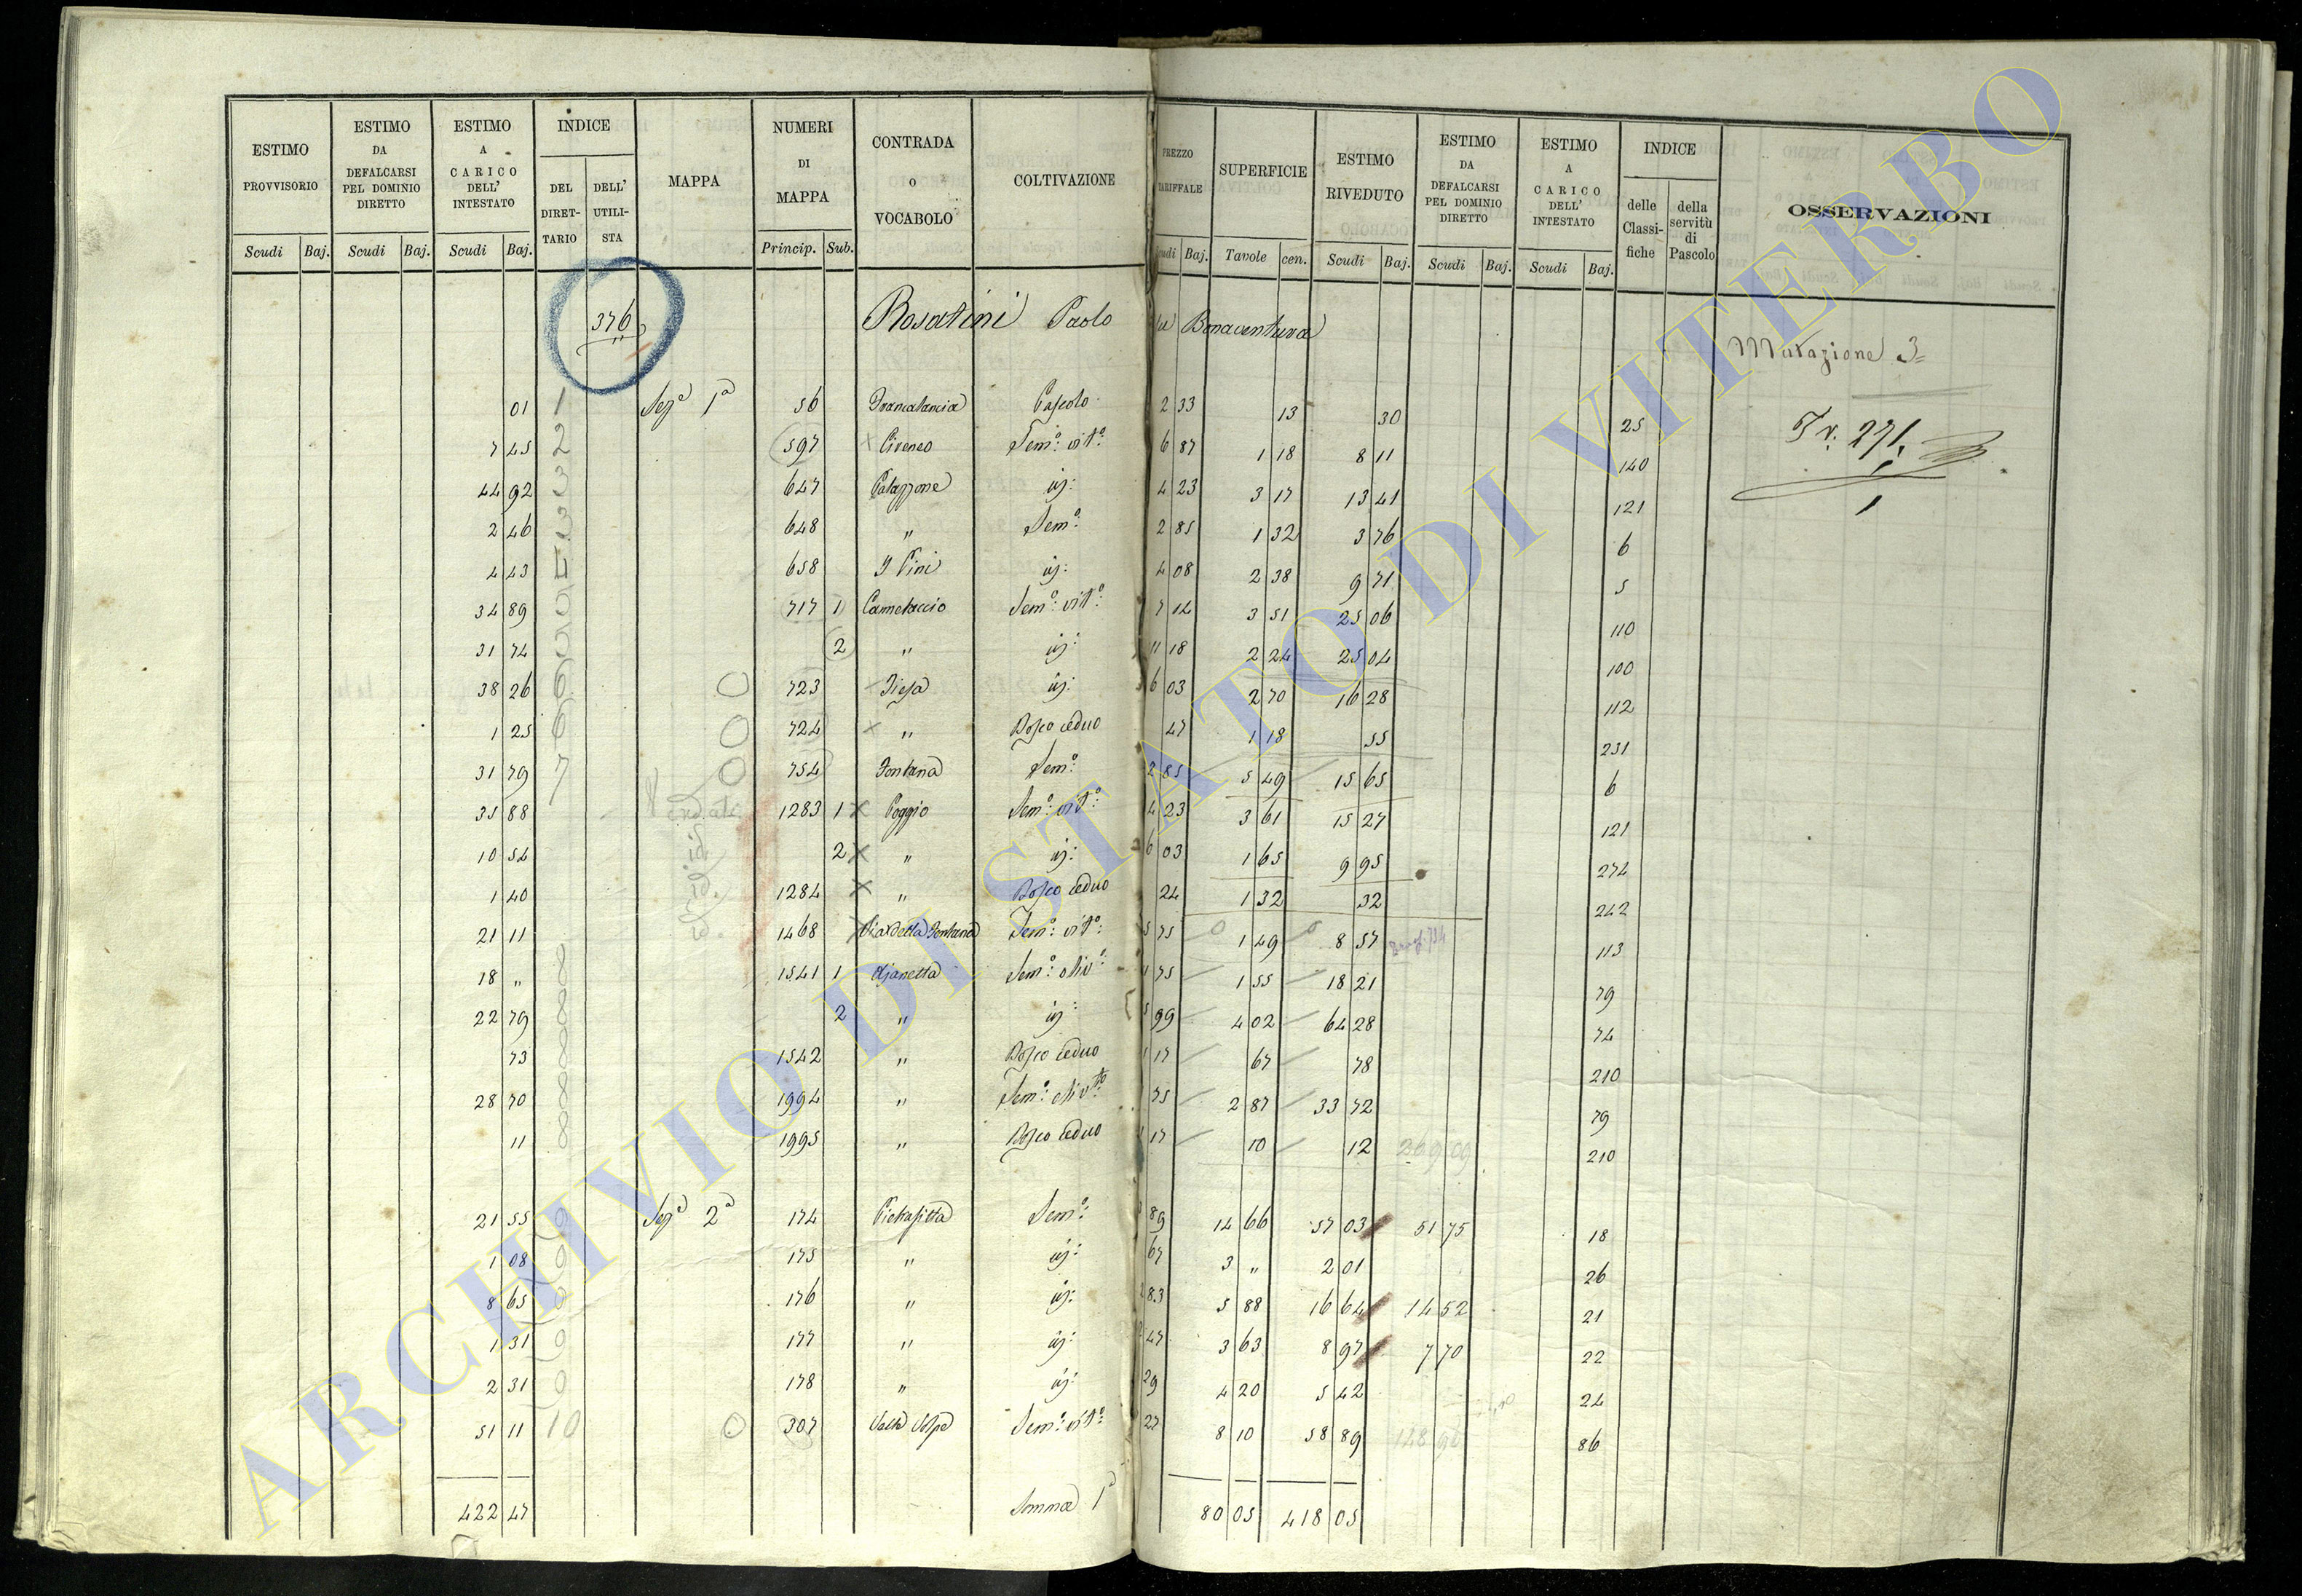 ESTIMO PROVVISORIO | ESTIMO DA DEFALCARSI PEL DOMINIO DIRETTO | ESTIMO A CARICO DELL' INTESTATO | INDICE | MAPPA | NUMERI DI MAPPA | CONTRADA O VOCABOLO | COLTIVAZIONE | PREZZO TARIFFALE | SUPERFICIE | ESTIMO RIVEDUTO | ESTIMO DA DEFALCARSI PEL DOMINIO DIRETTO | ESTIMO A CARICO DELL' INTESTATO | INDICE | OSSERVAZIONI
Scudi | Baj. | Scudi | Baj. | Scudi | Baj. | DEL DIRETTARIO | DELL' UTILISTA | Princip. | Sub. | Baj. | Tavole | cen. | Scudi | Baj. | Scudi | Baj. | Scudi | Baj. | delle Classifiche | della servitù di Pascolo
376 Rosatini Paolo Bonaventura
Mutazione 3
01 1 Sez.a 1a 56 Pascolo 2 33 13 30 25
Tr. 271
7 45 2 597 Cireneo Sem.o vit.o 6 87 1 18 8 11 140
44 92 3 647 Palazzone id: 4 23 3 17 13 41 121
1
2 46 3 648 " Sem.o 2 85 1 32 3 76 6
4 43 658 I Pini id: 4 08 2 38 9 71 5
34 89 717 1 Sem.o vit.o 7 14 3 51 25 06 110
31 74 2 " id: 11 18 2 24 25 04 100
38 26 6 723 id: 6 03 2 70 16 28 112
1 25 6 724 " Bosco ceduo 47 1 18 55 231
31 79 7 754 Fontana Sem.o 2 85 5 49 15 65 6
35 88 1283 1 Poggio Sem.o vit.o 4 23 3 61 15 27 121
10 54 id. 2 " id: 6 03 1 65 9 95 274
1 40 id. 1284 " Bosco ceduo 24 1 32 32 242
21 11 id. 1468 Sem.o vit.o 5 75 1 49 8 57 113
18 " 8 1541 1 Sem.o oliv.o 75 1 55 18 21 79
22 79 8 2 " id: 99 4 02 64 28 74
73 8 1542 " Bosco ceduo 1 17 67 78 210
28 70 8 1994 " Sem.o oliv.to 75 2 87 33 72 79
11 8 1995 " Bosco ceduo 17 10 12 269 09 210
21 55 9 Sez.a 2a 174 Pietrafitta Sem.o 3 89 14 66 57 03 51 75 18
1 08 9 175 " id: 67 3 " 2 01 26
8 65 9 176 " id: 2 83 5 88 16 64 14 52 21
1 31 9 177 " id: 2 47 3 63 8 97 7 70 22
2 31 9 178 " id: 29 4 20 5 42 24
51 11 10 307 Sem.o vit.o 27 8 10 58 89 86
422 47 Somma 1a 80 05 418 05
ARCHIVIO DI STATO DI VITERBO